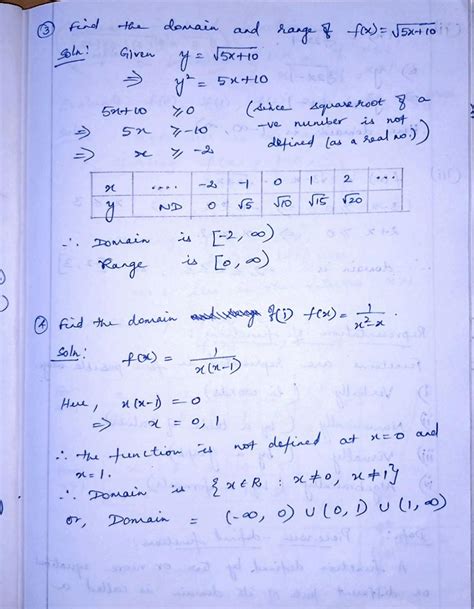 ③ Find the domain and range of f(x) = √5x+10
Soln: Given y = √5x+10
⇒ y² = 5x+10
5x+10 ⩾ 0 (Since square root of a
⇒ 5x ⩾ -10 -ve number is not
⇒ x ⩾ -2 defined (as a real no.))
x .... -2 -1 0 1 2 ...
y ND 0 √5 √10 √15 √20
∴ Domain is [-2, ∞)
Range is [0, ∞)
④ Find the domain of (i) f(x) = 1/x²-x .
Soln: f(x) = 1/x(x-1)
Here, x(x-1) = 0
⇒ x = 0, 1
∴ the function is not defined at x=0 and
x=1.
∴ Domain is {x ∈ R : x ≠ 0, x ≠ 1}
or, Domain = (-∞, 0) ∪ (0, 1) ∪ (1, ∞)